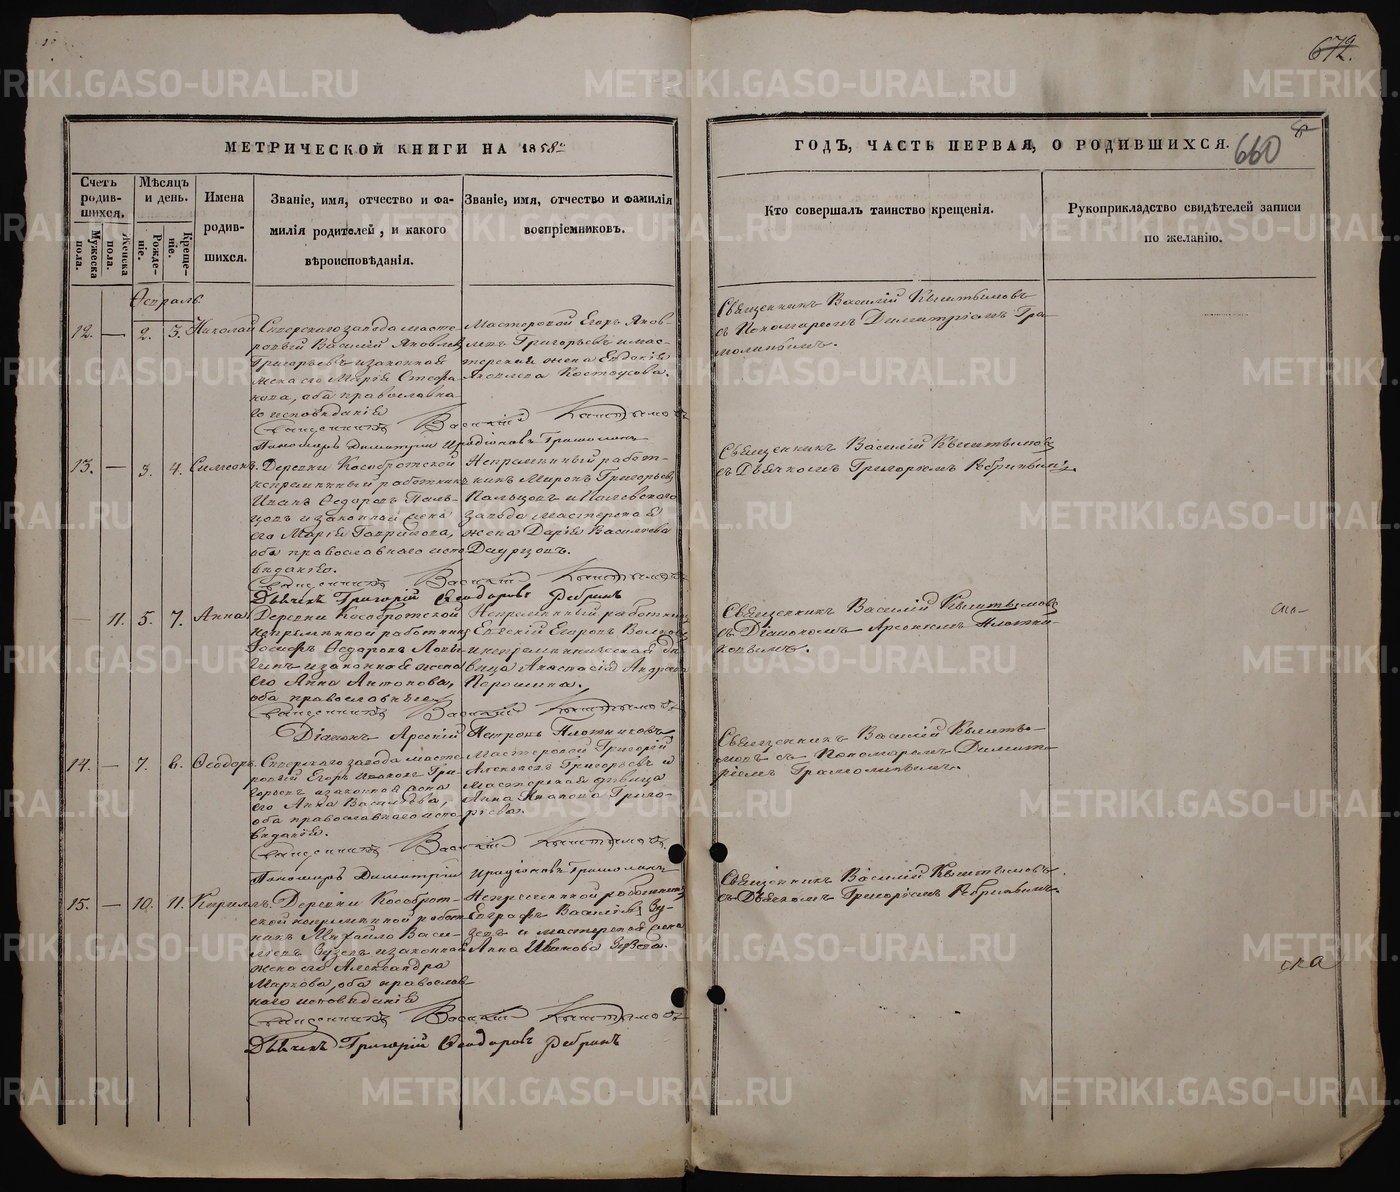 672.
660
МЕТРИЧЕСКОЙ КНИГИ НА 1858
ГОДЪ, ЧАСТЬ ПЕРВАЯ, О РОДИВШИХСЯ.
Счетъ родив-
шихся.
Мужеска пола.
Женска пола.
Мѣсяцъ и день.
Рожде-
ніе.
Креще-
ніе.
Имена
родив-
шихся.
Званіе, имя, отчество и фа-
милія родителей, и какого
вѣроисповѣданія.
Званіе, имя, отчество и фамилія
воспріемниковъ.
Кто совершалъ таинство крещенія.
Рукоприкладство свидѣтелей записи
по желанію.
12. — 2. 3. Николай
Сѣверскаго завода масте-
ровый Василій Яковлевъ
Григорьевъ и законная
жена его Марія Стефа-
нова, оба православна-
го исповѣданія
Мастеровой Егоръ Яков-
левъ Григорьевъ и мас-
терская жена Евдокія
Яковлева Костоусова.
Священникъ Василій Кыштымовъ
Пономарь Димитрій Иродіоновъ
Священникъ Василій Кыштымовъ
съ Пономаремъ Димитріемъ
13. — 3. 4. Симеонъ.
Деревни Кособродской
непремѣнный работникъ
Иванъ Ѳедоровъ Паль-
цовъ и законная жена
его Марія Гаврилова,
оба православнаго испо-
вѣданія.
Непремѣнный работ-
никъ Миронъ Григорьевъ
Пальцовъ и Полевскаго
завода мастерская
жена Дарія Васильева
Священникъ Василій Кыштымовъ
Дьячекъ Григорій Ѳеодоровъ Ребринъ
Священникъ Василій Кыштымовъ
съ Дьячкомъ Григоріемъ Ребринымъ.
11. 5. 7. Анна
Деревни Кособродской
непремѣнной работникъ
Іосифъ Ѳедоровъ
и законная жена
его Анна Антонова,
оба православные
Непремѣнный работникъ
Евсевій Егоровъ
и непремѣнническая дѣ-
вица Анастасія Андреева
Порошина.
Священникъ Василій Кыштымовъ
Діаконъ Арсеній Петровъ Плотниковъ
Священникъ Василій Кыштымовъ
съ Діакономъ Арсеніемъ Плотни-
ковымъ.
14. — 7. 8. Ѳеодоръ.
Сѣверскаго завода масте-
ровый Егоръ Ивановъ Гри-
горьевъ и законная жена
его Анна Васильева,
оба православнаго испо-
вѣданія.
Мастеровой Григорій
Алексѣевъ Григорьевъ и
мастерская дѣвица
Анна Иванова Григо-
рьева.
Священникъ Василій Кыштымовъ
Пономарь Димитрій Иродіоновъ
Священникъ Василій Кышты-
мовъ съ Пономаремъ Димит-
ріемъ
15. — 10. 11. Кириллъ.
Деревни Кособрод-
ской непремѣнной работ-
никъ Михайло Васи-
льевъ Зуевъ и законная
жена его Александра
Маркова, оба православ-
наго исповѣданія
Непремѣнной работникъ
Евграфъ Васильевъ Зу-
евъ и мастерская жена
Анна Иванова Зуева.
Священникъ Василій Кыштымовъ
Дьячекъ Григорій Ѳеодоровъ Ребринъ
Священникъ Василій Кыштымовъ
съ Дьячкомъ Григоріемъ Ребринымъ.
METRIKI.GASO-URAL.RU